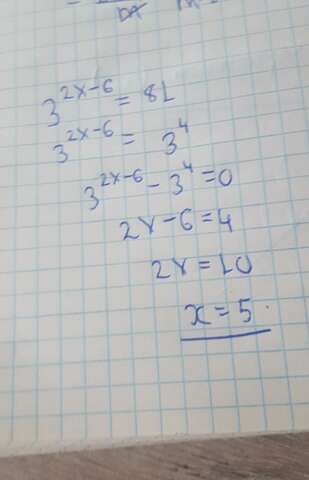 3^{2x-6} = 81
3^{2x-6} = 3^4
3^{2x-6} - 3^4 = 0
2x - 6 = 4
2x = 10
x = 5